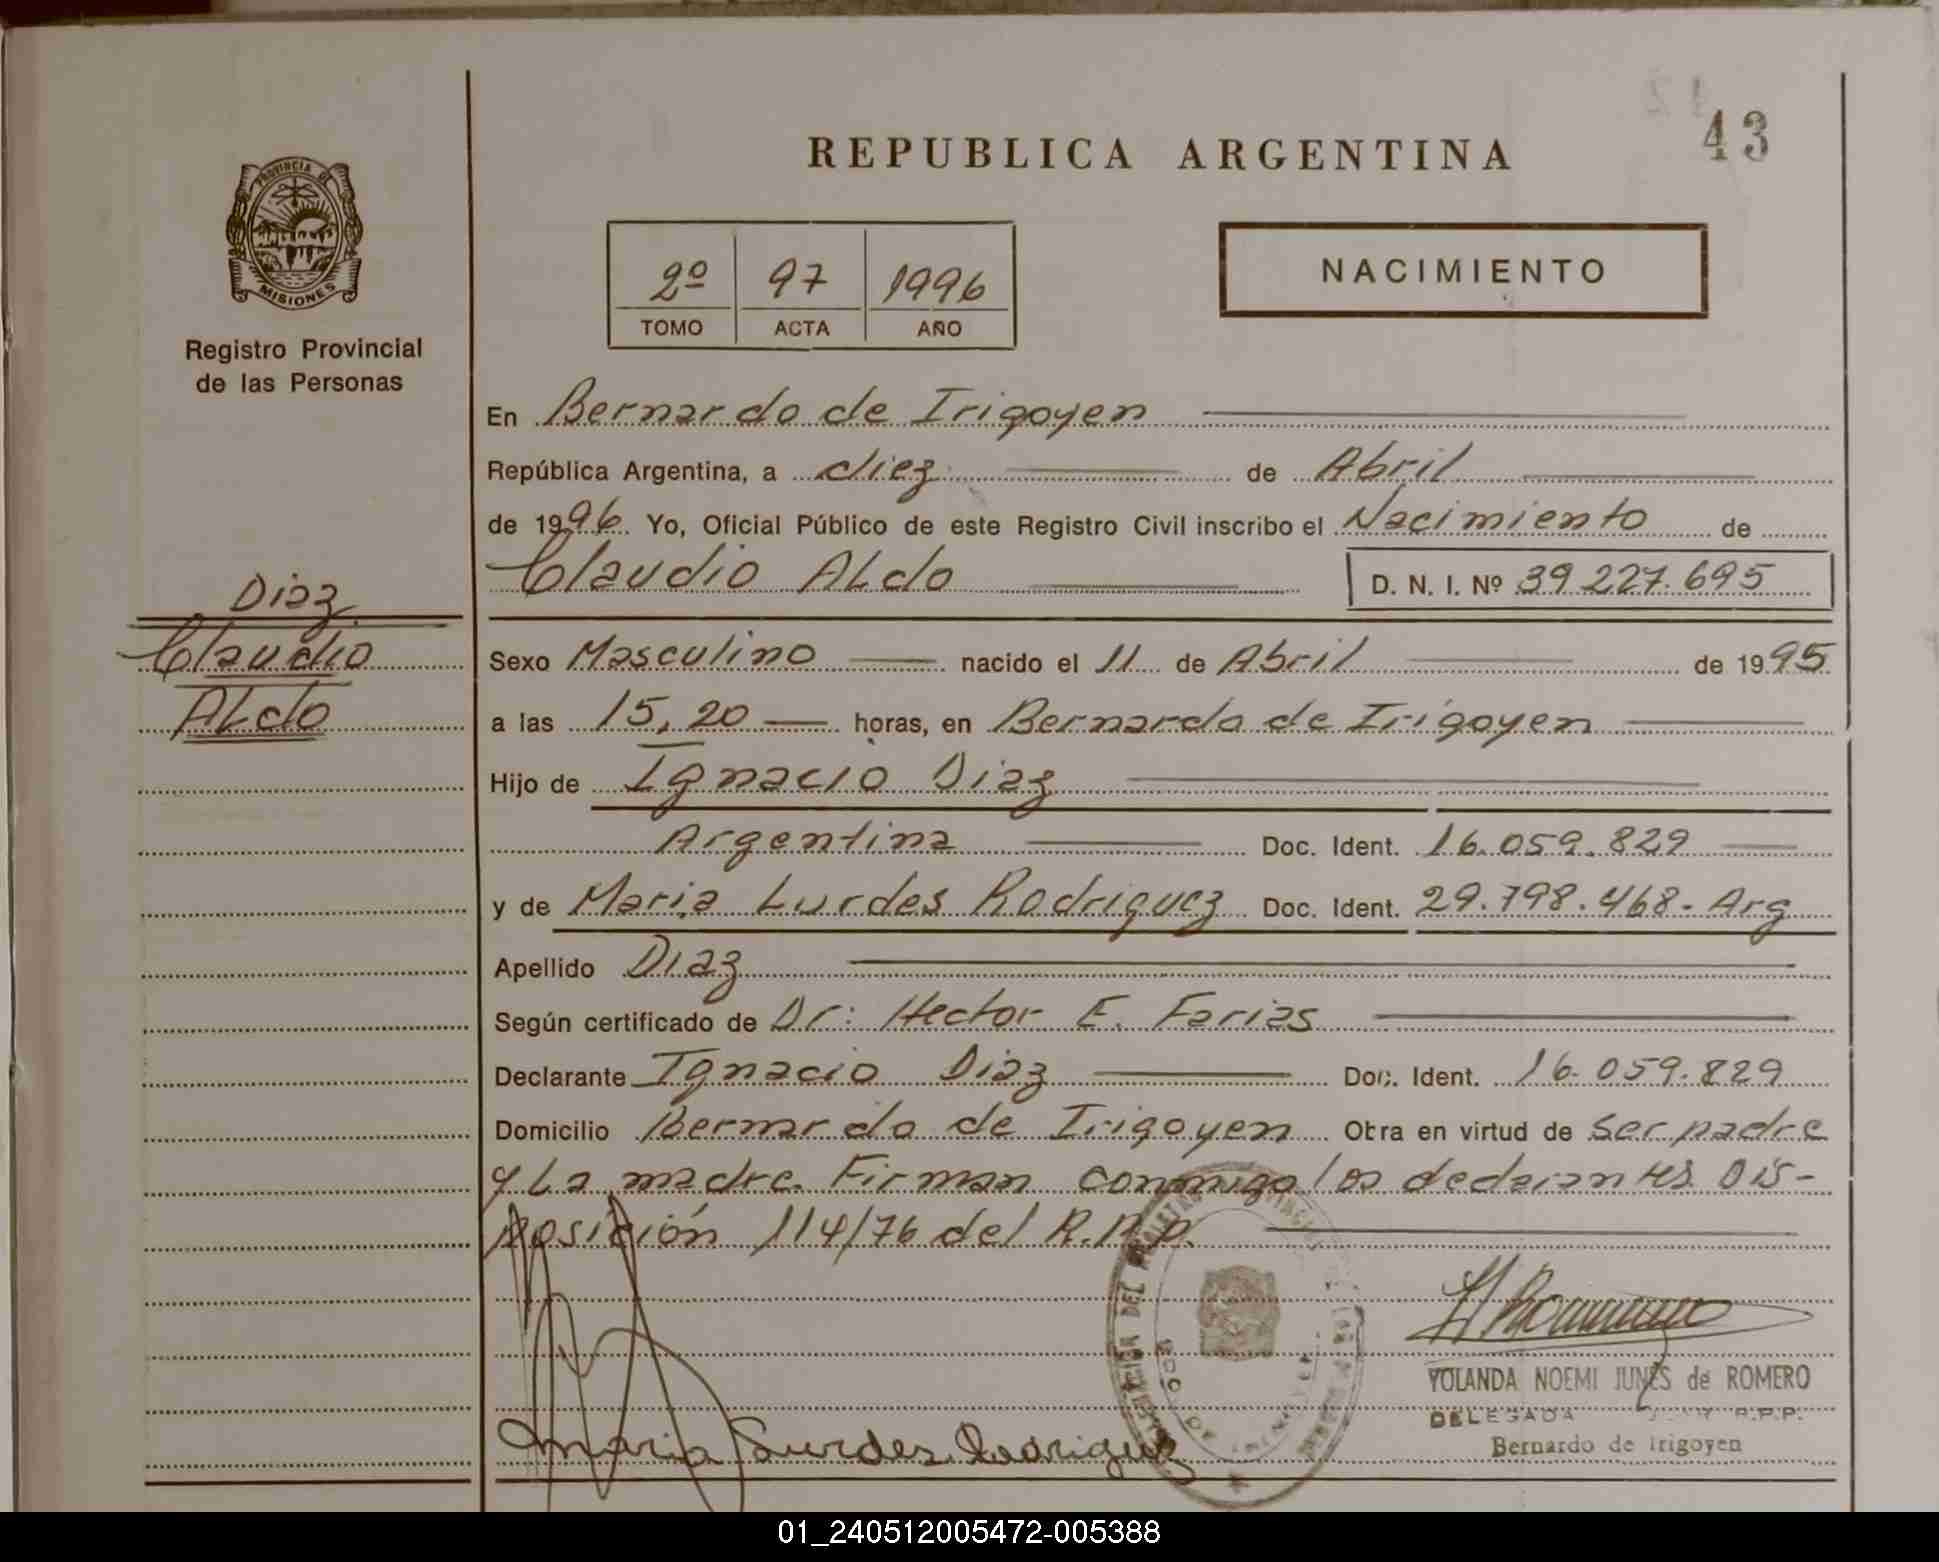 43
REPUBLICA ARGENTINA
PROVINCIA DE
MISIONES
Registro Provincial
de las Personas
2º 97 1996
TOMO ACTA AÑO
NACIMIENTO
En Bernardo de Irigoyen
República Argentina, a diez de Abril
de 1996 Yo, Oficial Público de este Registro Civil inscribo el Nacimiento de
Claudio ALdo D. N. I. Nº 39.227.695
Diaz
Claudio
ALdo
Sexo Masculino nacido el 11 de Abril de 1995
a las 15,20 horas, en Bernardo de Irigoyen
Hijo de Ignacio Diaz
Argentina Doc. Ident. 16.059.829
y de Maria Lurdes Rodriguez Doc. Ident. 29.798.468- Arg
Apellido Diaz
Según certificado de Dr: Hector E. Farias
Declarante Ignacio Diaz Doc. Ident. 16.059.829
Domicilio Bernardo de Irigoyen Obra en virtud de ser padre
y La madre. Firman conmigo los declarantes Dis-
posición 114/76 del R.P.P.
YOLANDA NOEMI JUNES de ROMERO
DELEGADA R.P.P.
Bernardo de Irigoyen
Maria Lurdes Rodriguez
01_240512005472-005388